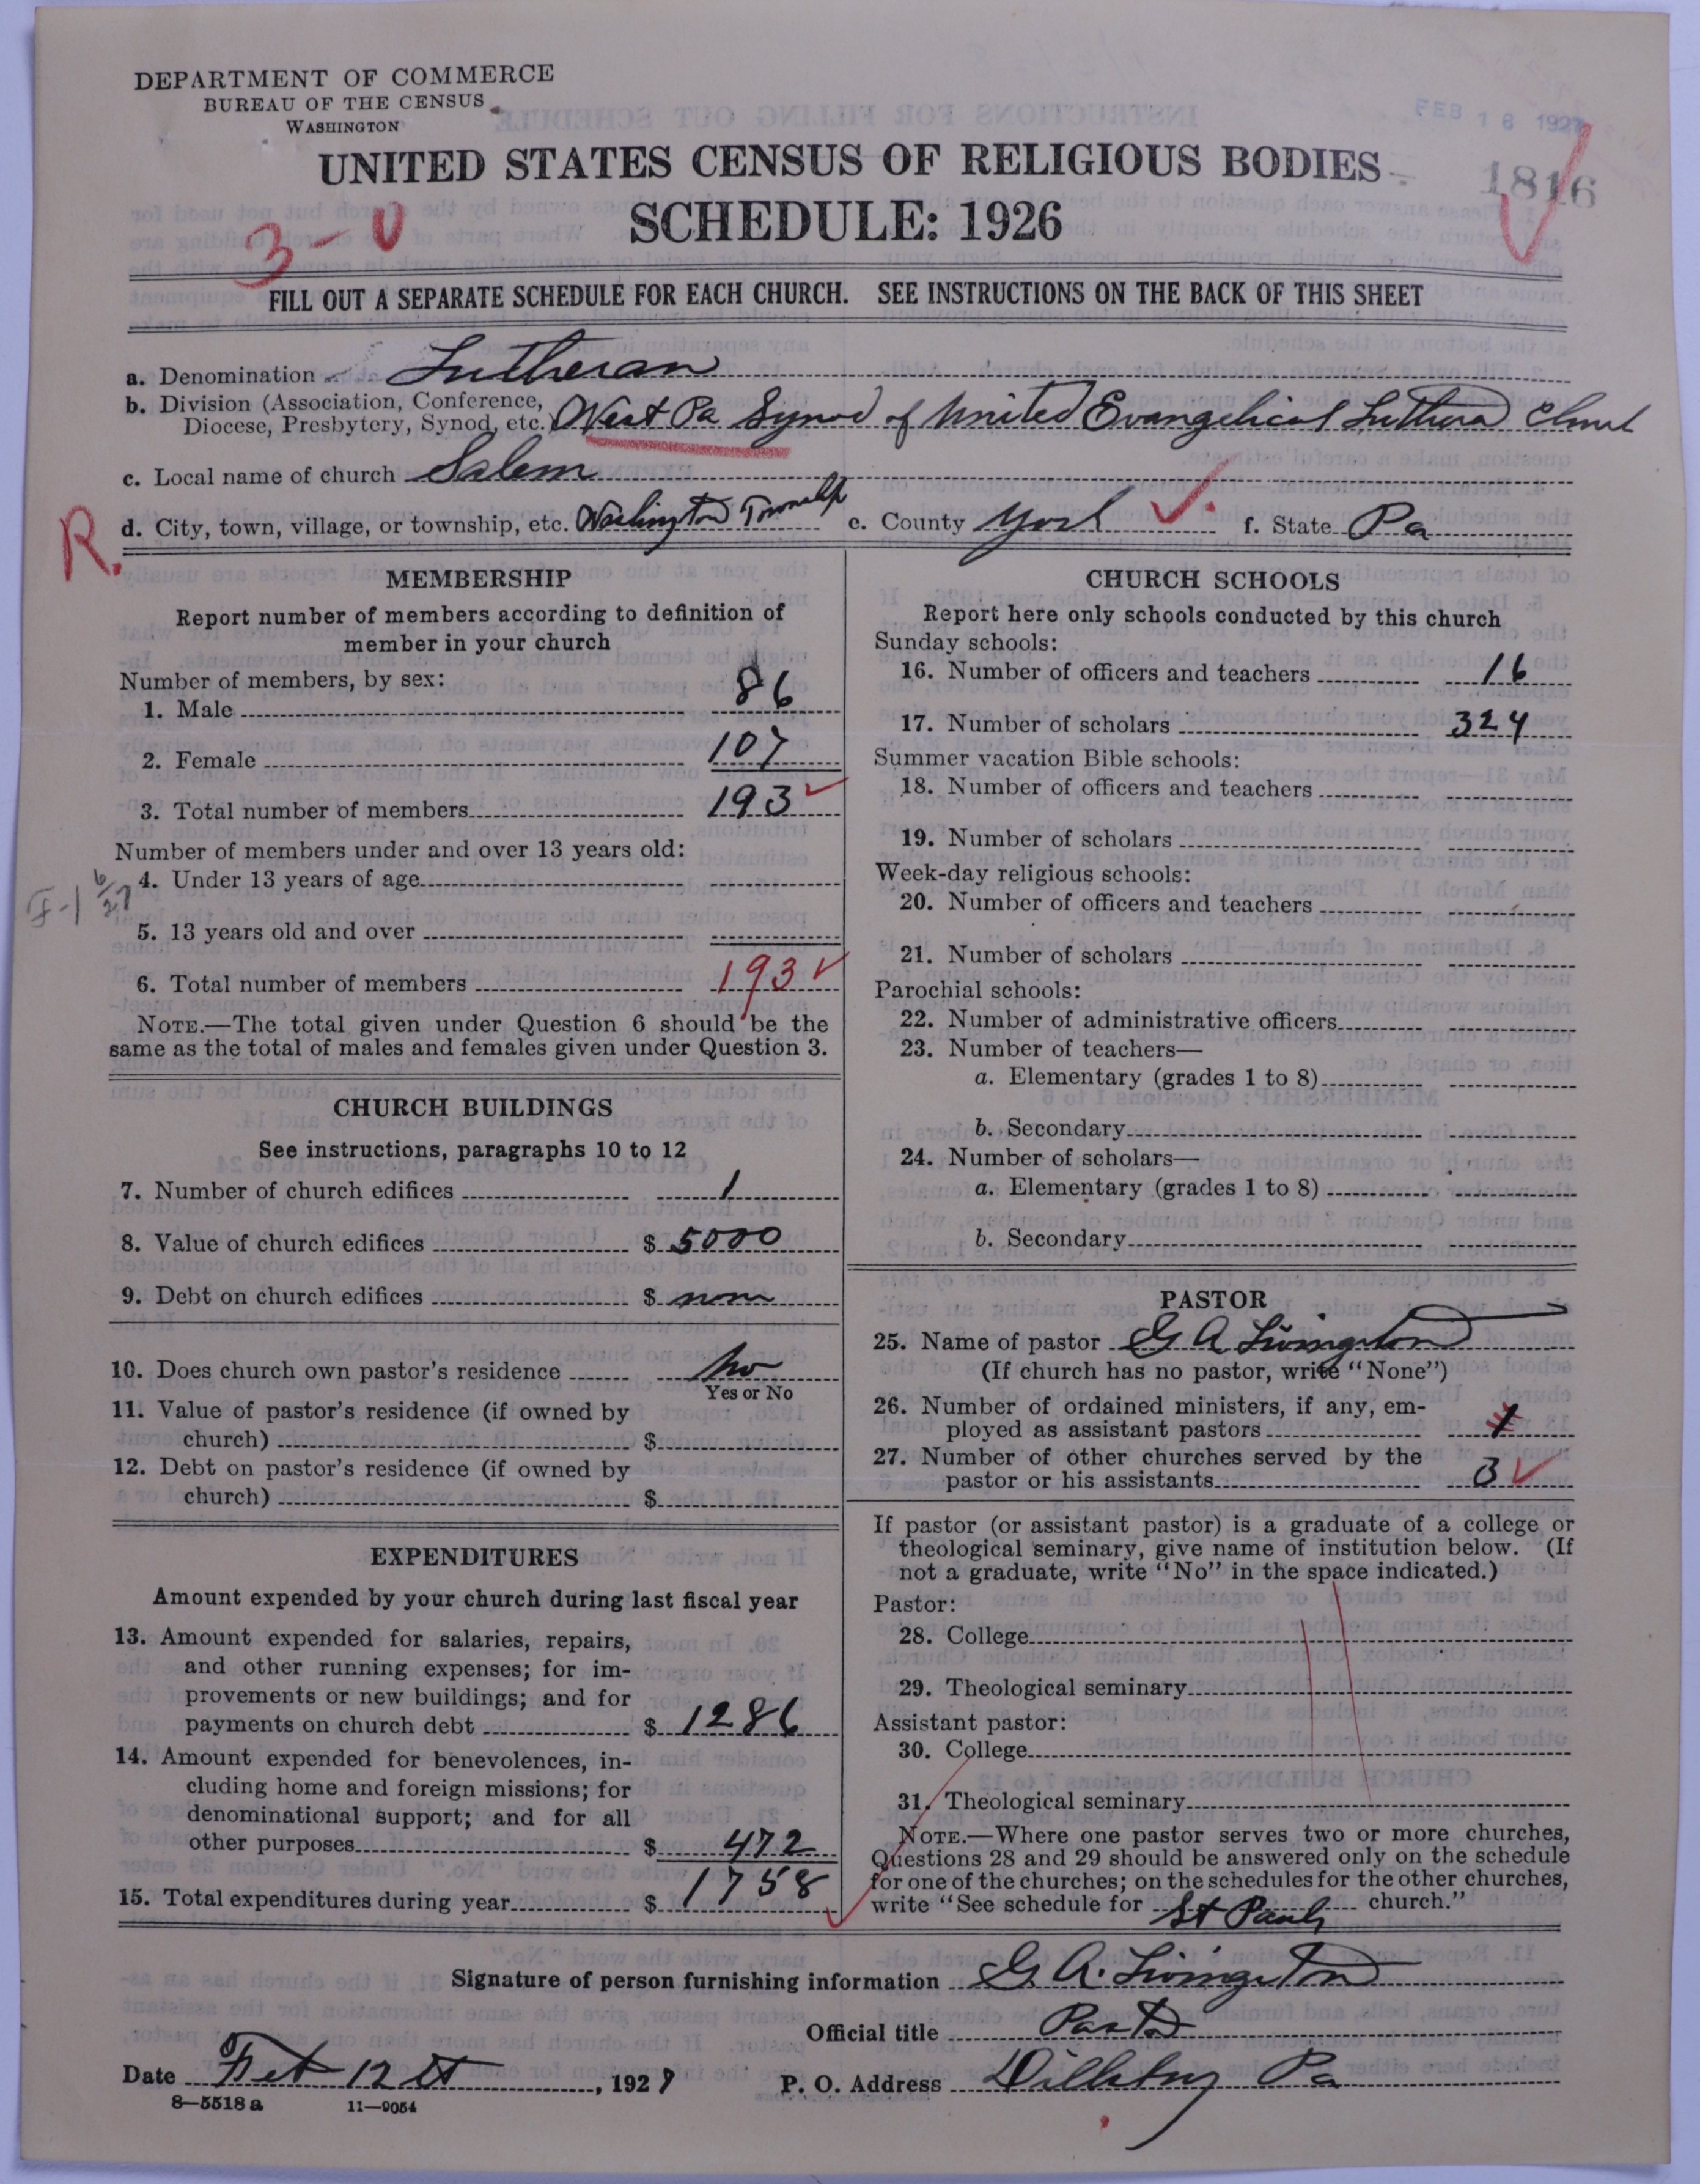 DEPARTMENT OF COMMERCE
BUREAU OF THE CENSUS
WASHINGTON
FEB 18 1927
UNITED STATES CENSUS OF RELIGIOUS BODIES
1816
SCHEDULE: 1926
3-0
FILL OUT A SEPARATE SCHEDULE FOR EACH CHURCH. SEE INSTRUCTIONS ON THE BACK OF THIS SHEET
a. Denomination Lutheran
b. Division (Association, Conference,
Diocese, Presbytery, Synod, etc.) West Pa Synod of United Evangelical Lutheran Church
c. Local name of church Salem
R. d. City, town, village, or township, etc. Washington Township e. County York f. State Pa
MEMBERSHIP
Report number of members according to definition of
member in your church
Number of members, by sex:
1. Male 86
2. Female 107
3. Total number of members 193
Number of members under and over 13 years old:
4. Under 13 years of age
5. 13 years old and over
6. Total number of members 193
NOTE.—The total given under Question 6 should be the
same as the total of males and females given under Question 3.
CHURCH BUILDINGS
See instructions, paragraphs 10 to 12
7. Number of church edifices 1
8. Value of church edifices $ 5000
9. Debt on church edifices $ none
10. Does church own pastor's residence No
Yes or No
11. Value of pastor's residence (if owned by
church) $
12. Debt on pastor's residence (if owned by
church) $
EXPENDITURES
Amount expended by your church during last fiscal year
13. Amount expended for salaries, repairs,
and other running expenses; for im-
provements or new buildings; and for
payments on church debt $ 1286
14. Amount expended for benevolences, in-
cluding home and foreign missions; for
denominational support; and for all
other purposes $ 472
15. Total expenditures during year $ 1758
CHURCH SCHOOLS
Report here only schools conducted by this church
Sunday schools:
16. Number of officers and teachers 16
17. Number of scholars 324
Summer vacation Bible schools:
18. Number of officers and teachers
19. Number of scholars
Week-day religious schools:
20. Number of officers and teachers
21. Number of scholars
Parochial schools:
22. Number of administrative officers
23. Number of teachers—
a. Elementary (grades 1 to 8)
b. Secondary
24. Number of scholars—
a. Elementary (grades 1 to 8)
b. Secondary
PASTOR
25. Name of pastor G A Livingston
(If church has no pastor, write "None")
26. Number of ordained ministers, if any, em-
ployed as assistant pastors 1
27. Number of other churches served by the
pastor or his assistants 3
If pastor (or assistant pastor) is a graduate of a college or
theological seminary, give name of institution below. (If
not a graduate, write "No" in the space indicated.)
Pastor:
28. College
29. Theological seminary
Assistant pastor:
30. College
31. Theological seminary
NOTE.—Where one pastor serves two or more churches,
Questions 28 and 29 should be answered only on the schedule
for one of the churches; on the schedules for the other churches,
write "See schedule for St Pauls church."
Signature of person furnishing information G. A. Livingston
Official title Pastor
Date Feb 12th, 1927 P. O. Address Dillsburg Pa
8—5518 a 11—9054